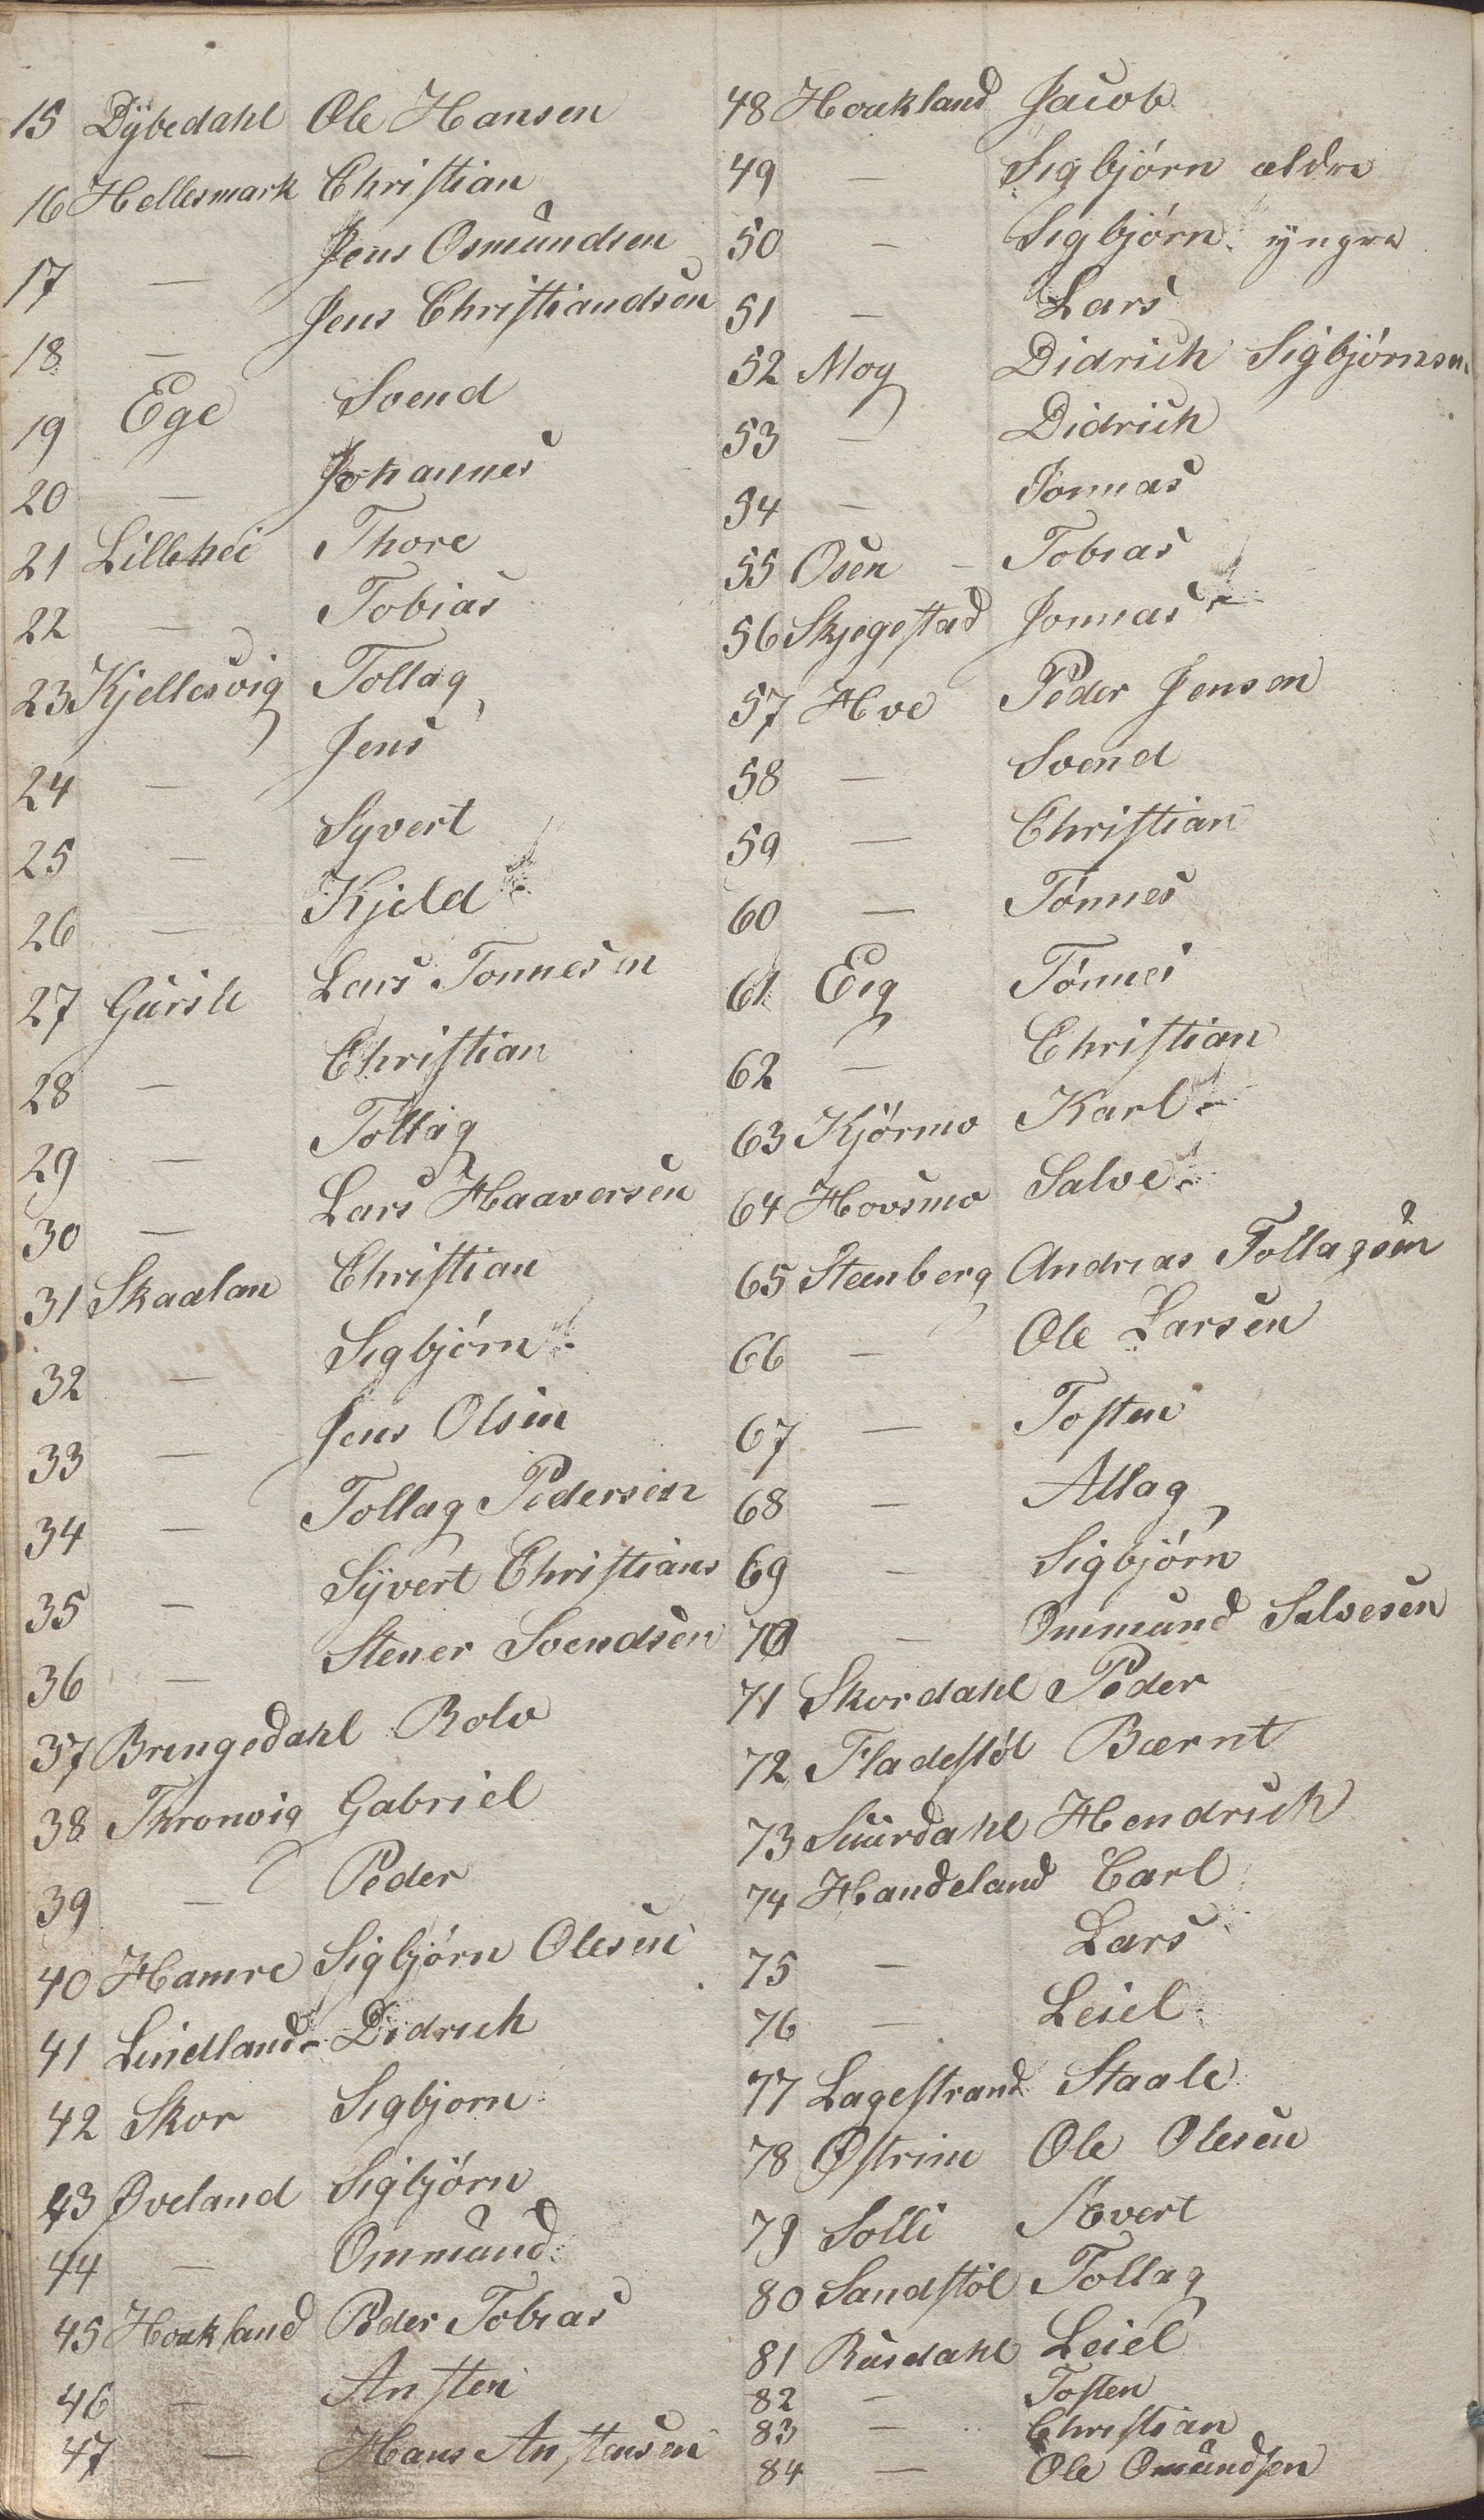 15 Dÿbedahl Ole Hansen
16 Hellesmark Christian
17 — Jens Osmundsen
18 — Jens Christiandsen
19 Ege Svend
20 — Johannes
21 Lillehei Thore
22 — Tobias
23 Kjellesvig Tollag
24 — Jens
25 — Syvert
26 — Kjeld
27 Gursli Lars Tonnesen
28 — Christian
29 — Tollag
30 — Lars Haaversen
31 Skaalan Christian
32 — Sigbjørn
33 — Jens Olsen
34 — Tollag Pedersen
35 — Sÿvert Christians
36 — Stener Svendsen
37 Bringedahl Rolv
38 Thronvig Gabriel
39 — Peder
40 Hamre Sigbjørn Olesen
41 Lindland Didrich
42 Skor Sigbjorn
43 Øveland Sigbjørn
44 — Ommund
45 Houkland Peder Tobias
46 — Ansten
47 — Hans Anstensen
48 Houkland Jacob
49 — Sigbjørn ældre
50 — Sigbjørn ÿngre
51 — Lars
52 Moy Didrich Sigbjørnsen
53 — Didrich
54 — Jonnas
55 Osen – Tobias
56 Skjegestad Jonnas
57 Hve Peder Jensen
58 — Svend
59 — Christian
60 — Tønnes
61 Eig Tønnes
62 — Christian
63 Kjørmo Karl
64 Hovsmo Salve
65 Steenberg Andreas Tollagsen
66 — Ole Larsen
67 — Tosten
68 — Atlag
69 — Sigbjørn
70 — Ommund Salvesen
71 Skordahl Peder
72 Fladestøl Bærnt
73 Suurdahl Hendrich
74 Handeland Carl
75 — Lars
76 — Leiel
77 Lagestrand Staale
78 Østrim Ole Olesen
79 Solli Sivert
80 Sandstøl Tollag
81 Rusdahl Leiel
82 — Tosten
83 — Christian
84 — Ole Omundsen